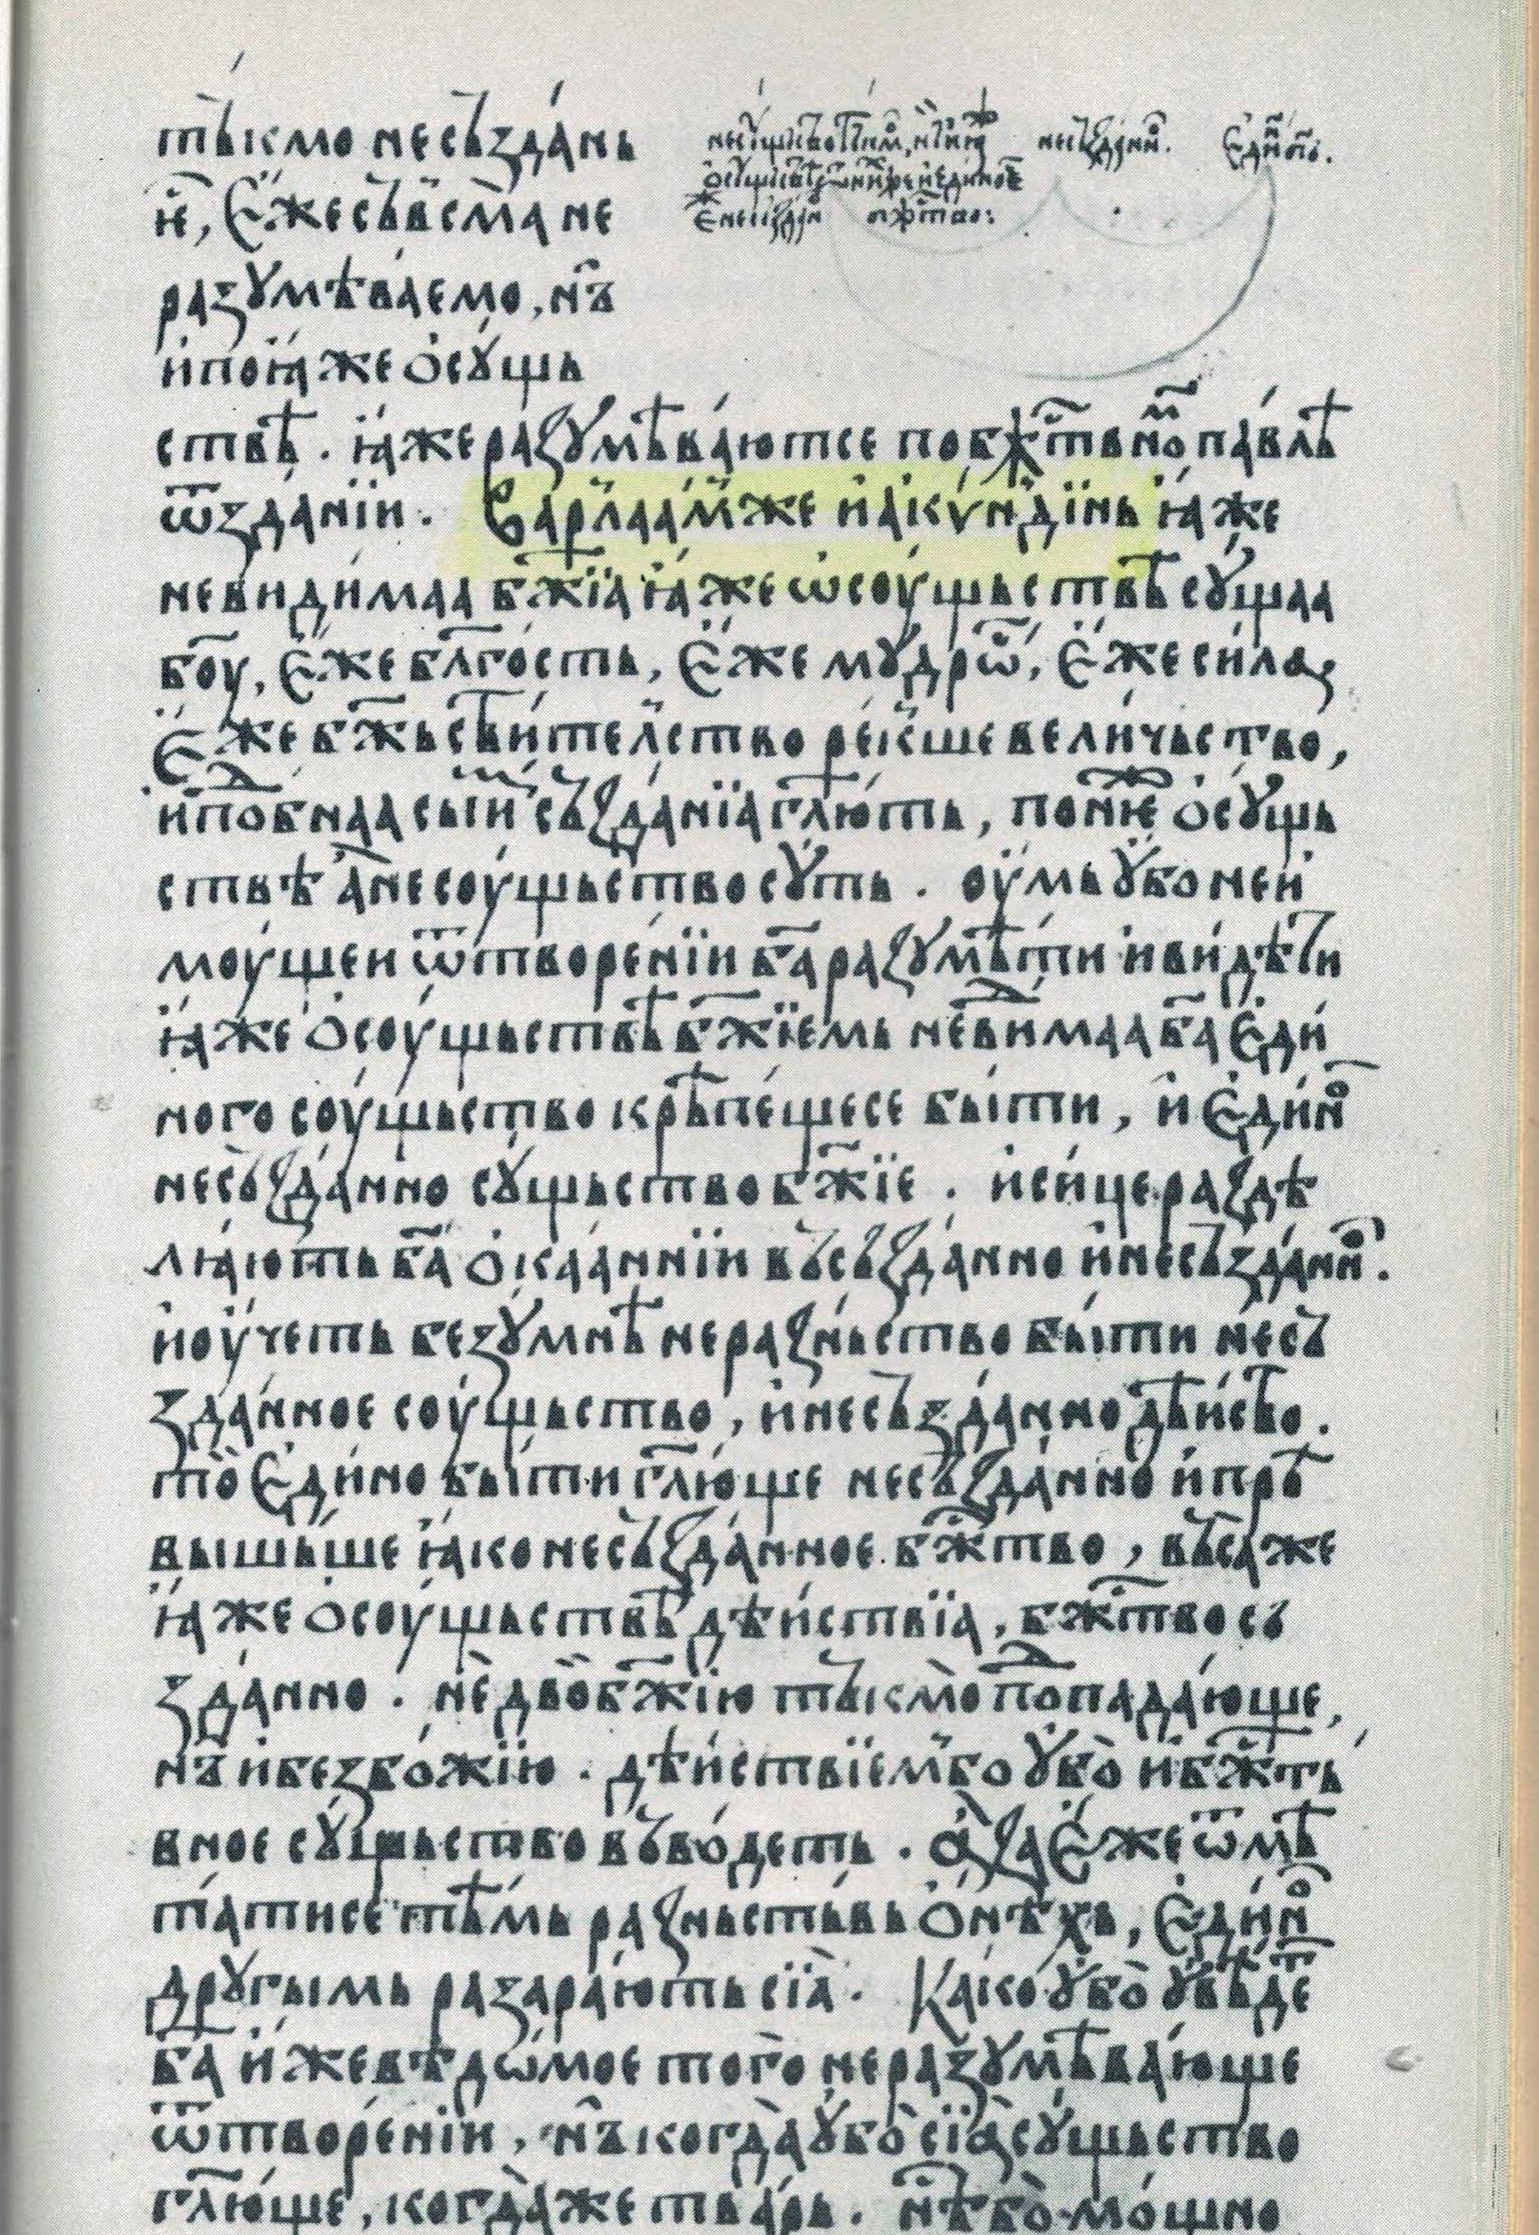 тъ́кмо несъзда́нь
і҆е҆, Є҆́же съв̾сѣ́ма не
разꙋмѣва́емо, нъ̏
и҆по ꙗ҆́же о҆сꙋ́щь
ствѣ. ꙗ҆́же разꙋмѣва́ютсе побж҃тв́ном̑ꙋ па́влѣ
ѿзда́нїи. Варла́ам̾же и҆ а҆кѵ́н̾дїнь ꙗ҆́же
неви́ди́маа бж҃їа ꙗ҆́же ѡ҆соу́щьствѣ сꙋ́щаа
боу҃, Є҆́же блг҃ость, Є҆́же мꙋ́дрѡ, Є҆́же си́ла,
Є҆́же бж҃ьсви́тел̾ство ре́к̾ше вели́чьство,
и҆подо́бнаа сы́мь създа́нїа гл҃ють, поне́же о҆сꙋ́щь
ствѣ а҆не соу́щьство сꙋ́ть. оу҆́мь ᲂу҆́бо неи҆
моу́щеи ѿтворе́нїи ба҃ разꙋмѣ́ти и҆ви́дѣти
ꙗ҆́же о҆соу́щьствѣ бж҃їемь неви́димаа ба҃ Є҆ди́
ного соу́щьство крѣпе́щесе бы́ти, и҆ Є҆ди́но
несъзда́нно сꙋ́щьство бж҃їе. и҆си́це раздѣ
лꙗ́ють ба҃ о҆каа́ннїи въсъзда́нно и҆несъзда́нно.
и҆оу҆́четь безꙋ́мнѣ нера́зньство бы́ти несъ
зда́нное соу́щьство, и҆несъзда́нно дѣ́йство.
то̀ Є҆ди́но бы́ти гл҃ю́ще несъзда́нно и҆прѣ
вы́шьше ꙗ҆́ко несъзда́нное бж҃тво, въса́же
ꙗ҆́же о҆соу́щьствѣ дѣ́йствїа, бж҃тво съ
зда́нно. не двоб҃жїю тъ́кмо подпада́юще,
нъ̏ и҆безбо́жїю. дѣ́йствїем̾бо ᲂу҆́бо и҆бж҃ть
вное сꙋ́щьство въво́деть. а҆за Є҆́же ѿмѣ
та́тисе тѣ́мь ра́зньствьвь о҆́нѣхь, Є҆ди́но
дрꙋгы́мь разара́ють сїа̀. Ка́ко ᲂу҆́бо ᲂу҆вѣ́дет
ба҃ и҆́же вѣ́дѡмое того̀ неразꙋмѣва́юще
ѿтворе́нїи, нъ̏ когда̀ ᲂу҆́бо сїа̀ сꙋ́щьство
гл҃ю́ще, когда́же тва́рь. нѣ́ бо мо́щно